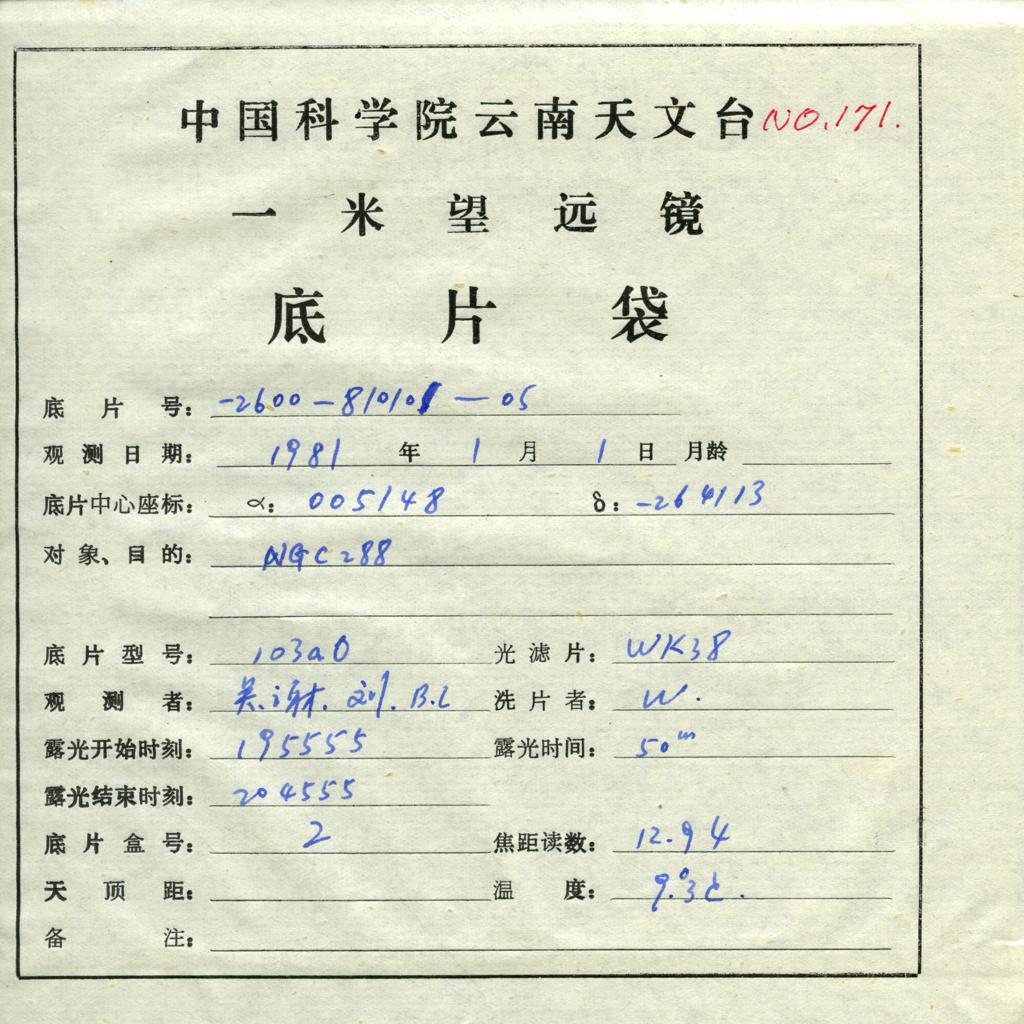 中国科学院云南天文台 NO.171.
一米望远镜
底片袋
底片号: -2600-810101-05
观测日期: 1981年1月1日 月龄
底片中心座标: α: 005148 δ: -264113
对象、目的: NGC288
底片型号: 103aO 光滤片: WK38
观测者: 吴.谢.刘.B.L 洗片者: W.
露光开始时刻: 195555 露光时间: 50m
露光结束时刻: 204555
底片盒号: 2 焦距读数: 12.94
天顶距: 温度: 9.°3
备注: